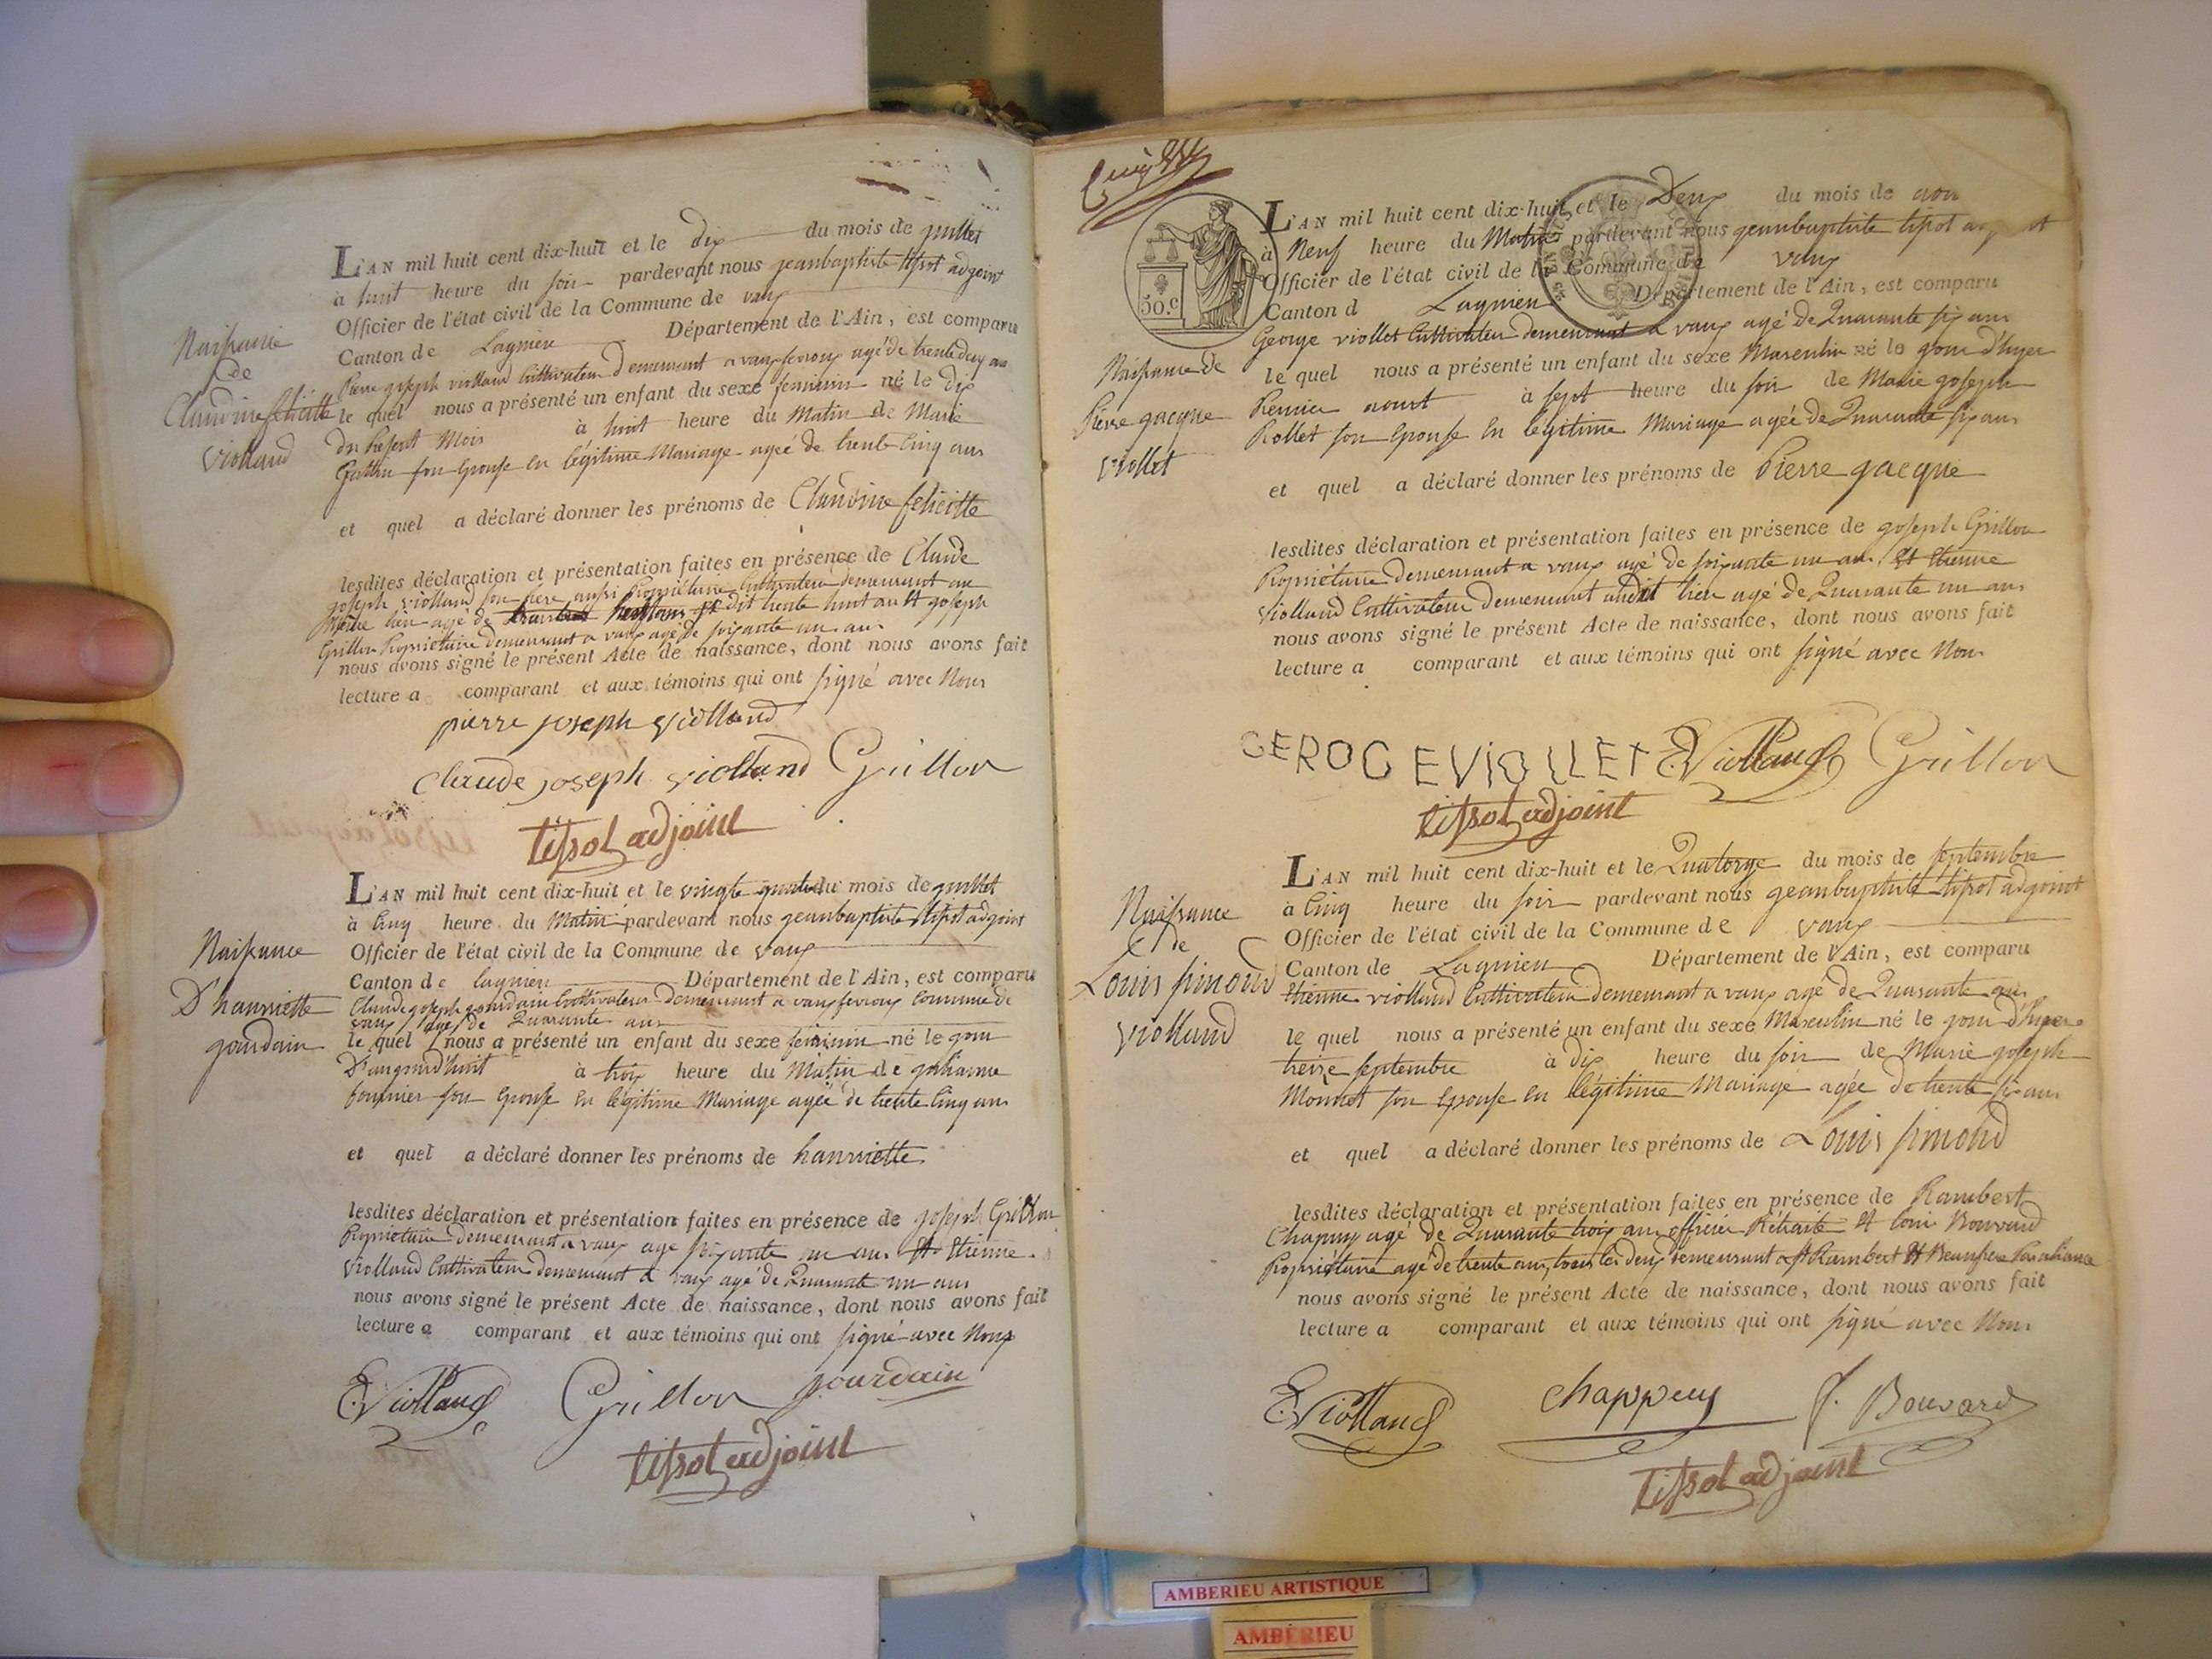 Naissance
de
Claudine felicitte
Violland
L'AN mil huit cent dix-huit et le dix du mois de juillet
à huit heure du soir pardevant nous jeanbaptiste tissot adjoint
Officier de l'état civil de la Commune de vaux
Canton de Lagnieu Département de l'Ain, est comparu
Pierre joseph violland Cultivateur demeurant a vauxfevroux agé de trente deux ans
le quel nous a présenté un enfant du sexe feminin né le dix
du Présent Mois à huit heure du Matin de Marie
son Epouse en légitime Mariage agée de trente Cinq ans
et quel a déclaré donner les prénoms de Claudine felicitte
lesdites déclaration et présentation faites en présence de Claude
joseph violland son frère aussi Propriétaire Cultivateur demeurant au
même lieu agé de dit trente huit ans et joseph
Grillon Propriétaire demeurant a vaux agé de soixante un ans
nous avons signé le présent Acte de naissance, dont nous avons fait
lecture a comparant et aux témoins qui ont signé avec Nous
pierre joseph violland
Claude joseph violland Grillon
tissot adjoint
Naissance
D'hanriette
gourdain
L'AN mil huit cent dix-huit et le vingte quatre du mois de juillet
à Cinq heure du Matin pardevant nous jeanbaptiste tissot adjoint
Officier de l'état civil de la Commune de vaux
Canton de lagnieu Département de l'Ain, est comparu
Claude joseph gourdain Cultivateur demeurant a vauxfevroux Commune de
vaux agé de Quarante ans
le quel nous a présenté un enfant du sexe feminin né le jour
D'aujourd'huit à trois heure du Matin de julianne
fournier son Epouse en légitime Mariage agée de trente Cinq ans
et quel a déclaré donner les prénoms de hanriette
lesdites déclaration et présentation faites en présence de joseph Grillon
Propriétaire demeurant a vaux agé soixante un ans Et Etienne
Violland Cultivateur demeurant a vaux agé de Quarante un ans
nous avons signé le présent Acte de naissance, dont nous avons fait
lecture a comparant et aux témoins qui ont signé avec Nous
E. Violland Grillon jourdain
tissot adjoint
50.c
Naissance de
Pierre jacque
viollet
L'AN mil huit cent dix-huit et le Deux du mois de aout
à Neuf heure du Matin pardevant nous jeanbaptiste tissot
Officier de l'état civil de la Commune de vaux
Canton d Lagnieu Département de l'Ain, est comparu
George viollet Cultivateur demeurant a vaux agé de Quarante six ans
le quel nous a présenté un enfant du sexe Masculin né le jour d'hyer
Premier aoust à sept heure du soir de Marie joseph
Rollet son Epouse en légitime Mariage agée de Quarante six ans
et quel a déclaré donner les prénoms de Pierre jacque
lesdites déclaration et présentation faites en présence de joseph Grillon
Propriétaire demeurant a vaux agé de soixante un ans Et Etienne
violland Cultivateur demeurant audit lieu agé de Quarante un ans
nous avons signé le présent Acte de naissance, dont nous avons fait
lecture a comparant et aux témoins qui ont signé avec Nous
GEROGEVIOLLET E. Violland Grillon
tissot adjoint
Naissance
de
Louis simond
violland
L'AN mil huit cent dix-huit et le Quatorze du mois de septembre
à Cinq heure du soir pardevant nous jeanbaptiste tissot adjoint
Officier de l'état civil de la Commune de vaux
Canton de Lagnieu Département de l'Ain, est comparu
Etienne violland Cultivateur demeurant a vaux agé de Quarante ans
le quel nous a présenté un enfant du sexe Masculin né le jour d'hyer
treize septembre à dix heure du soir de Marie joseph
Monnet son Epouse en légitime Mariage agée de trente six ans
et quel a déclaré donner les prénoms de Louis simond
lesdites déclaration et présentation faites en présence de Rambert
Chapuy agé de Quarante trois ans officier Rétraité Et Loui Bouvard
Propriétaire agé de trente ans, tous les deux demeurant a st Rambert Et Beaufrere Par aliance
nous avons signé le présent Acte de naissance, dont nous avons fait
lecture a comparant et aux témoins qui ont signé avec Nous
E. Violland chappuy Bouvard
Tissot adjoint
AMBERIEU ARTISTIQUE
AMBERIEU